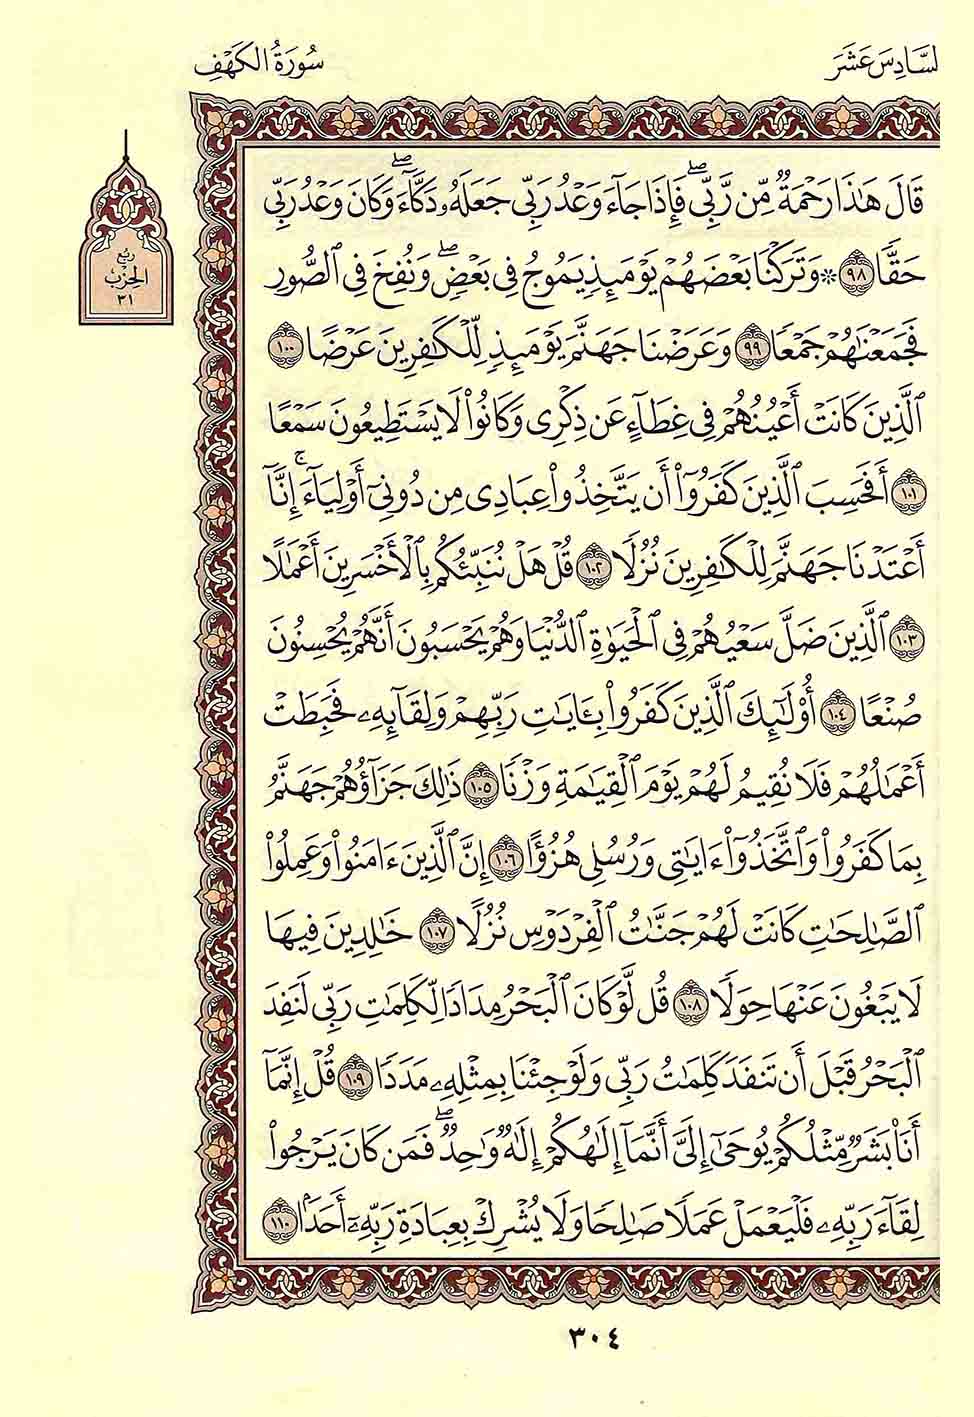 لسَّادِسَ عَشَرَ
سُورَةُ الكَهْفِ
رُبْعُ
الحِزْبِ
٣١
قَالَ هَـٰذَا رَحْمَةٌ مِّن رَّبِّى ۖ فَإِذَا جَآءَ وَعْدُ رَبِّى جَعَلَهُۥ دَكَّآءَ ۖ وَكَانَ وَعْدُ رَبِّى
حَقًّا ٩٨ ۞ وَتَرَكْنَا بَعْضَهُمْ يَوْمَئِذٍ يَمُوجُ فِى بَعْضٍ ۖ وَنُفِخَ فِى ٱلصُّورِ
فَجَمَعْنَـٰهُمْ جَمْعًا ٩٩ وَعَرَضْنَا جَهَنَّمَ يَوْمَئِذٍ لِّلْكَـٰفِرِينَ عَرْضًا ١٠٠
ٱلَّذِينَ كَانَتْ أَعْيُنُهُمْ فِى غِطَآءٍ عَن ذِكْرِى وَكَانُوا۟ لَا يَسْتَطِيعُونَ سَمْعًا
١٠١ أَفَحَسِبَ ٱلَّذِينَ كَفَرُوٓا۟ أَن يَتَّخِذُوا۟ عِبَادِى مِن دُونِىٓ أَوْلِيَآءَ ۚ إِنَّآ
أَعْتَدْنَا جَهَنَّمَ لِلْكَـٰفِرِينَ نُزُلًا ١٠٢ قُلْ هَلْ نُنَبِّئُكُم بِٱلْأَخْسَرِينَ أَعْمَـٰلًا
١٠٣ ٱلَّذِينَ ضَلَّ سَعْيُهُمْ فِى ٱلْحَيَوٰةِ ٱلدُّنْيَا وَهُمْ يَحْسَبُونَ أَنَّهُمْ يُحْسِنُونَ
صُنْعًا ١٠٤ أُو۟لَـٰٓئِكَ ٱلَّذِينَ كَفَرُوا۟ بِـَٔايَـٰتِ رَبِّهِمْ وَلِقَآئِهِۦ فَحَبِطَتْ
أَعْمَـٰلُهُمْ فَلَا نُقِيمُ لَهُمْ يَوْمَ ٱلْقِيَـٰمَةِ وَزْنًا ١٠٥ ذَٰلِكَ جَزَآؤُهُمْ جَهَنَّمُ
بِمَا كَفَرُوا۟ وَٱتَّخَذُوٓا۟ ءَايَـٰتِى وَرُسُلِى هُزُؤًا ١٠٦ إِنَّ ٱلَّذِينَ ءَامَنُوا۟ وَعَمِلُوا۟
ٱلصَّـٰلِحَـٰتِ كَانَتْ لَهُمْ جَنَّـٰتُ ٱلْفِرْدَوْسِ نُزُلًا ١٠٧ خَـٰلِدِينَ فِيهَا
لَا يَبْغُونَ عَنْهَا حِوَلًا ١٠٨ قُل لَّوْ كَانَ ٱلْبَحْرُ مِدَادًا لِّكَلِمَـٰتِ رَبِّى لَنَفِدَ
ٱلْبَحْرُ قَبْلَ أَن تَنفَدَ كَلِمَـٰتُ رَبِّى وَلَوْ جِئْنَا بِمِثْلِهِۦ مَدَدًا ١٠٩ قُلْ إِنَّمَآ
أَنَا۠ بَشَرٌ مِّثْلُكُمْ يُوحَىٰٓ إِلَىَّ أَنَّمَآ إِلَـٰهُكُمْ إِلَـٰهٌ وَٰحِدٌ ۖ فَمَن كَانَ يَرْجُوا۟
لِقَآءَ رَبِّهِۦ فَلْيَعْمَلْ عَمَلًا صَـٰلِحًا وَلَا يُشْرِكْ بِعِبَادَةِ رَبِّهِۦٓ أَحَدًۢا ١١٠
٣٠٤